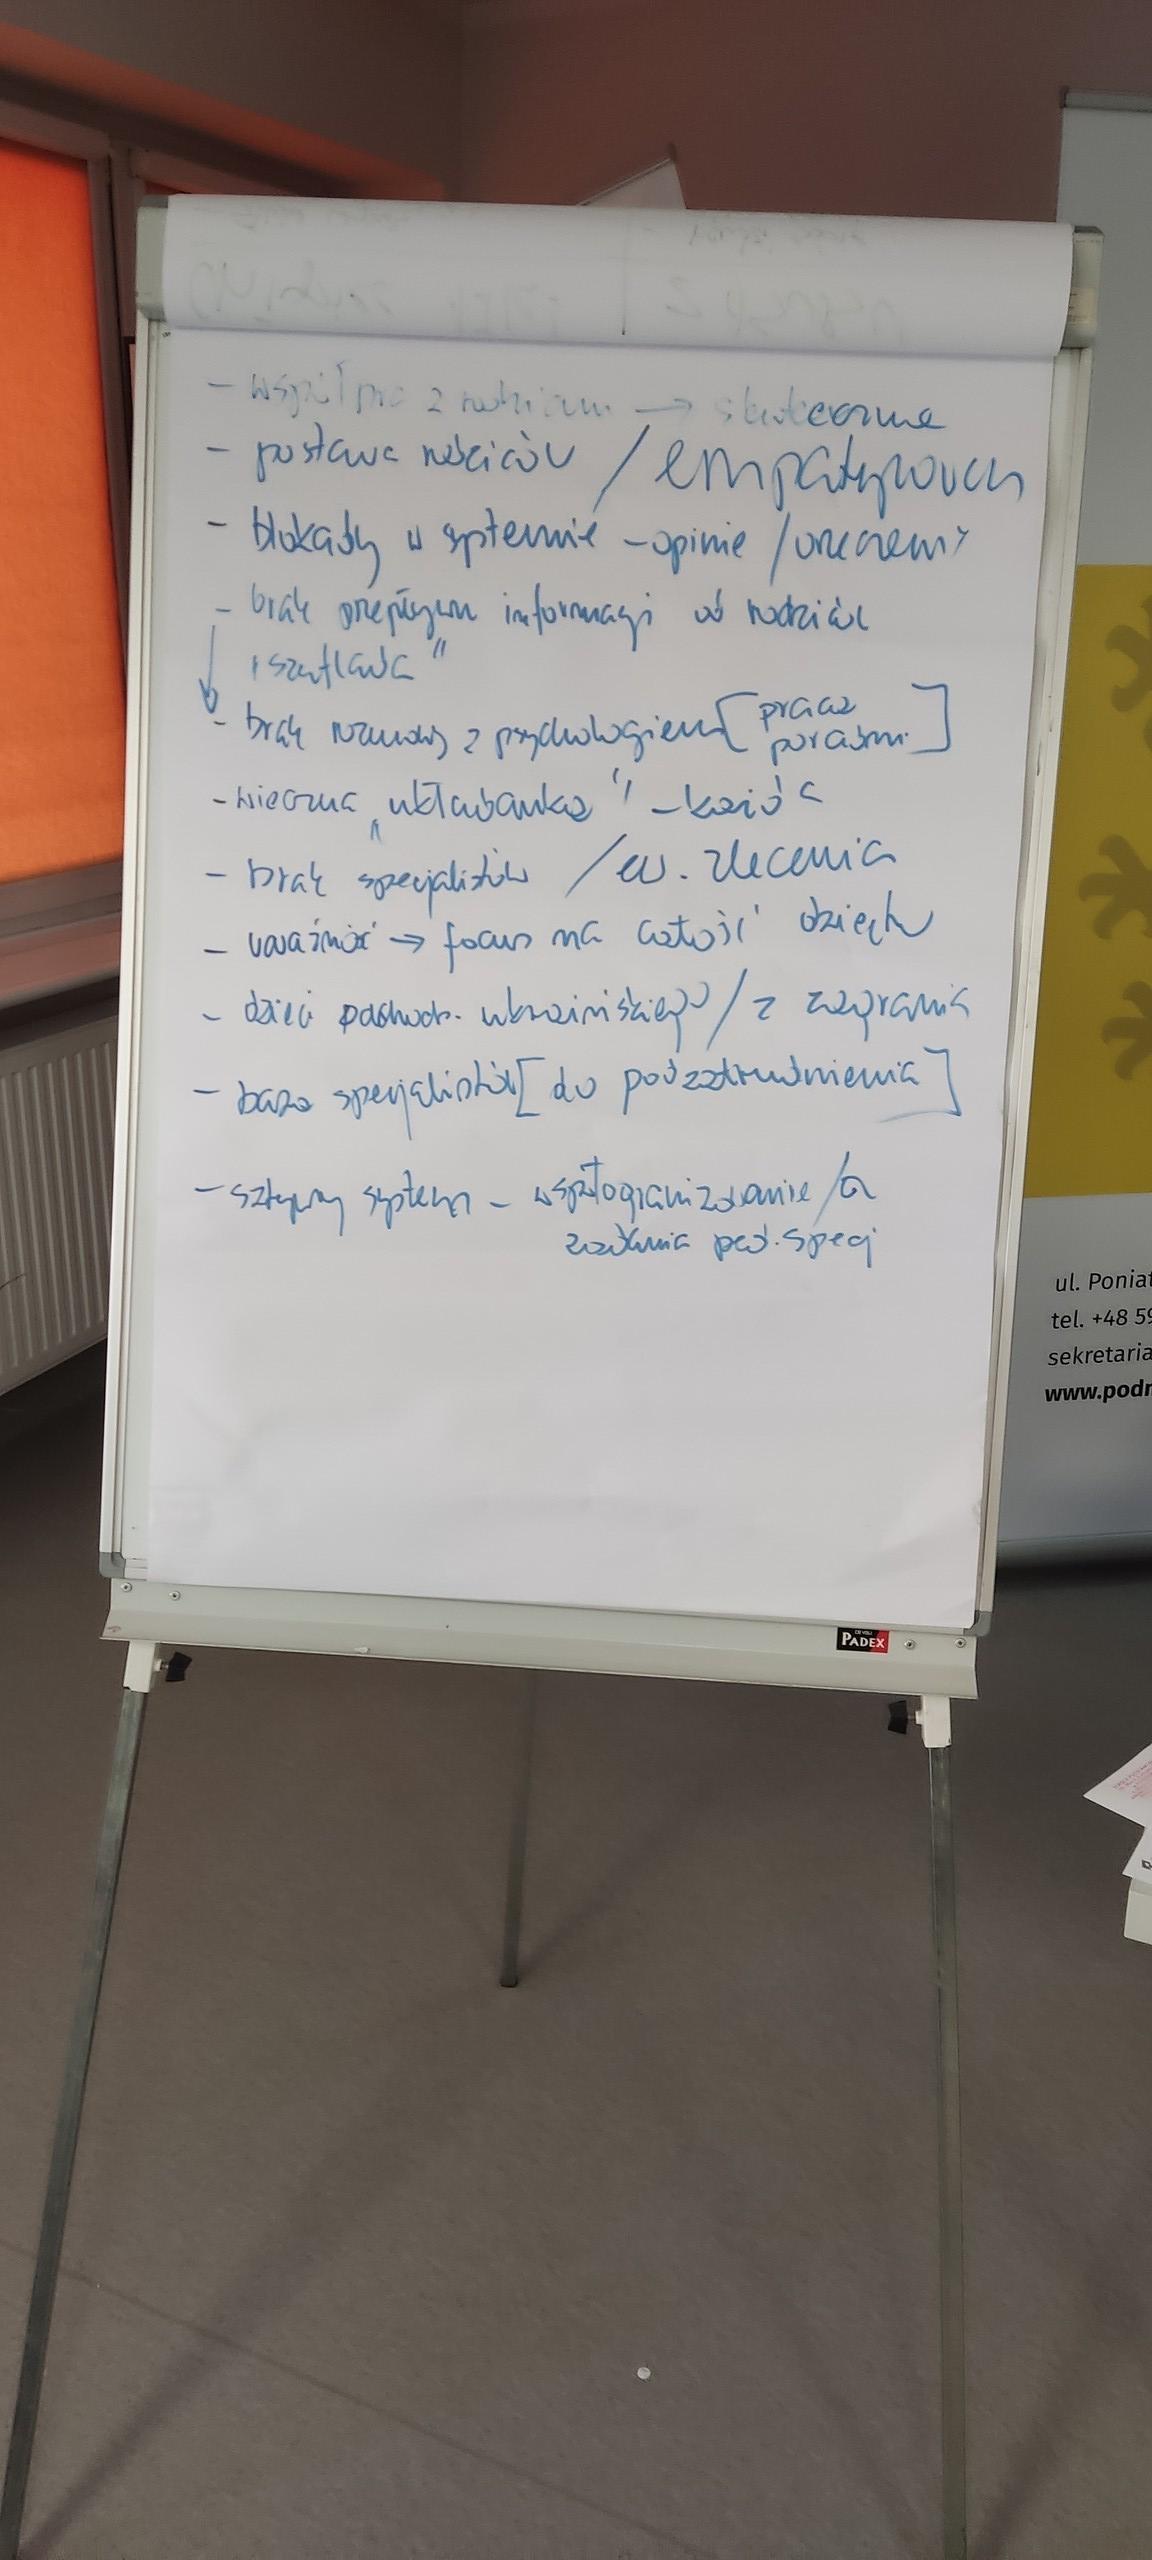 - współprac z rodzicami → skuteczna
- postawa rodziców / empatyzowch
- blokady w systemie - opinie / orzeczeni
- brak przepływu informacji od rodziców
"szuflada"
- brak rozmowy z psychologiem [pracaz
poradni.]
- wieczna "układanka" -
- brak specjalistów / ew. zlecenia
- uważność → focus na całość dziecka
- dzieci pochodz. ukraińskiego / z zagranic
- baza specjalistów [do podzatrudnienia]
- sztywny system - współorganizowanie / a
zadania ped. specj
ul. Poniat
tel. +48 59
sekretaria
www.podn
PADEX